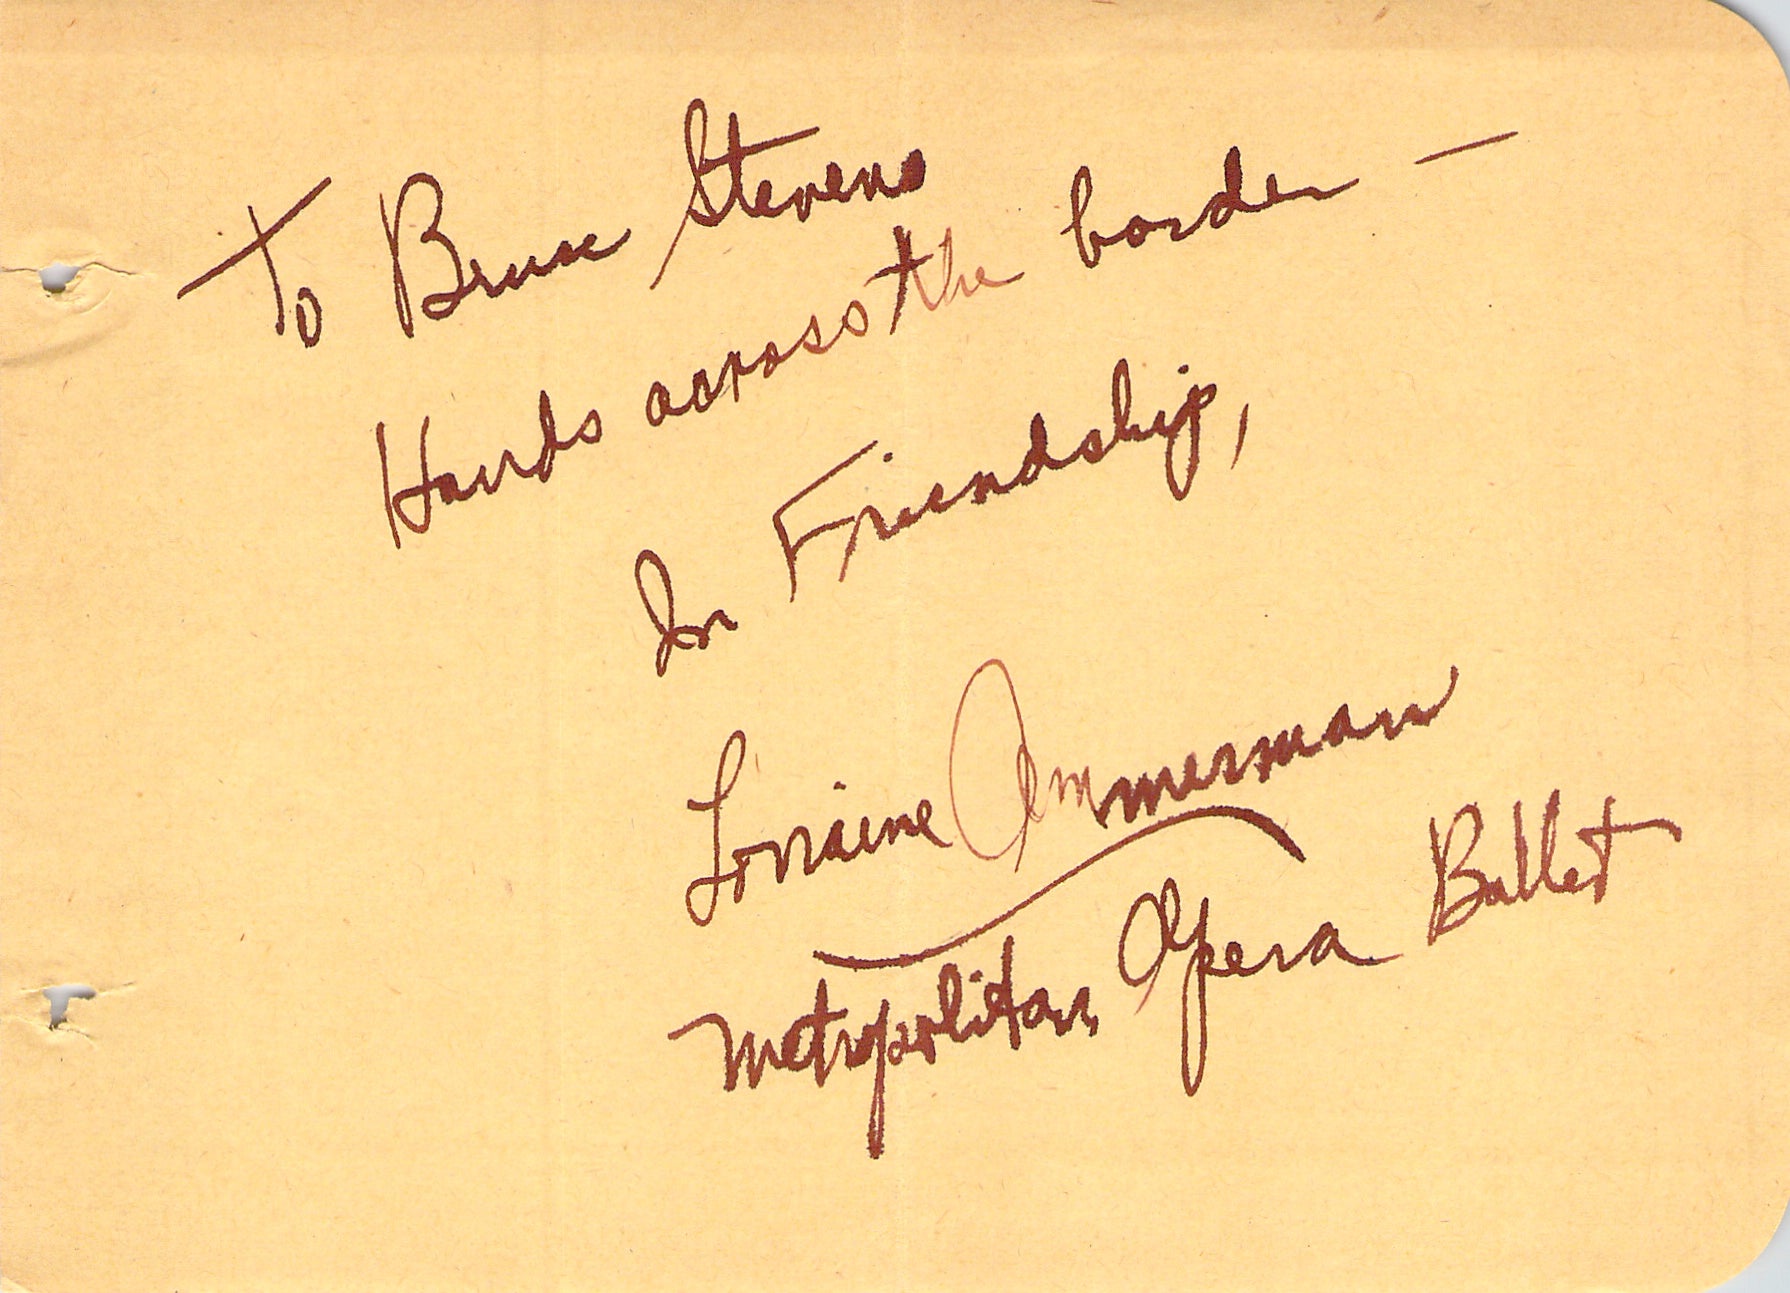 To Bruce Stevens
Hands across the border —
In Friendship,
Lorraine Ammerman
Metropolitan Opera Ballet